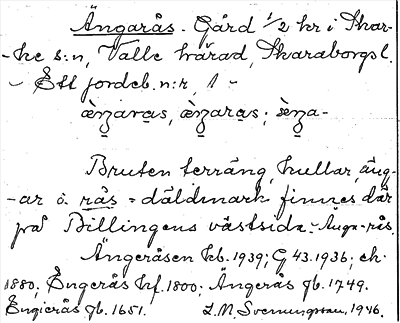 Ängarås. Gård 1/2 hr i Skar-
-ke s:n, Valle härad, Skaraborgs l.
- Ett jordeb. n:r, 1 -
Bruten terräng, kullar, äng-
-ar o. rås = däldmark finnes där
på Billingens västsida. - Änga-rås,
Ängeråsen kb. 1939; G 43. 1936; ek.
1880; Engerås hf. 1800; Ängerås jb. 1749.
Engierås jb. 1651. L.M. Svenungsson, 1946.